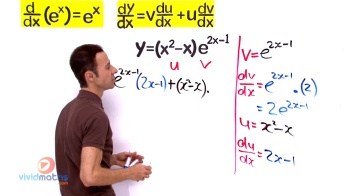 d/dx (eˣ)=eˣ
dy/dx = v du/dx + u dv/dx
y=(x²-x)e²ˣ⁻¹
u v
e²ˣ⁻¹(2x-1)+(x²-x).
v=e²ˣ⁻¹
dv/dx=e²ˣ⁻¹.(2)
=2e²ˣ⁻¹
u=x²-x
du/dx=2x-1
vividmaths